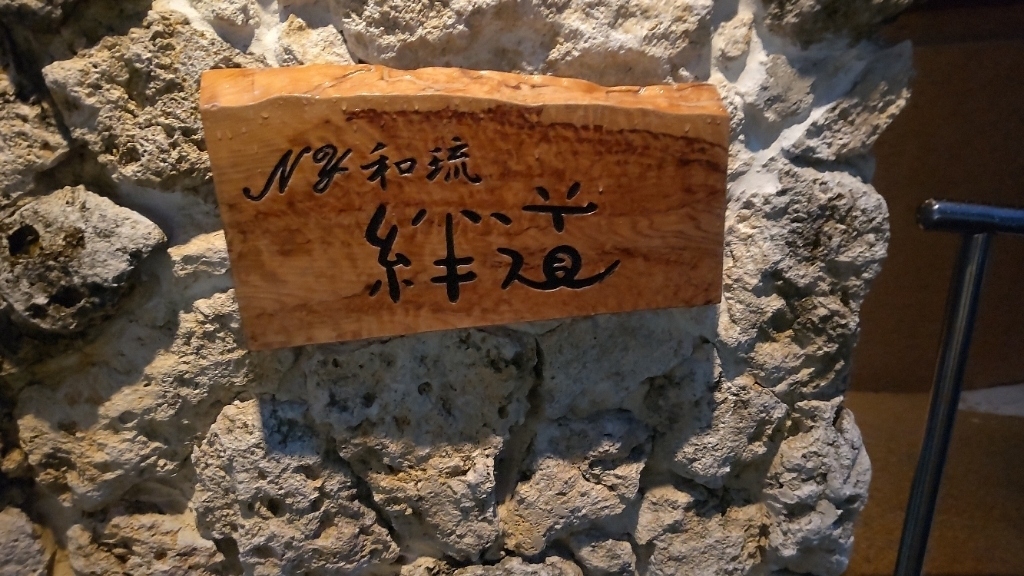 NY和琉
絆道